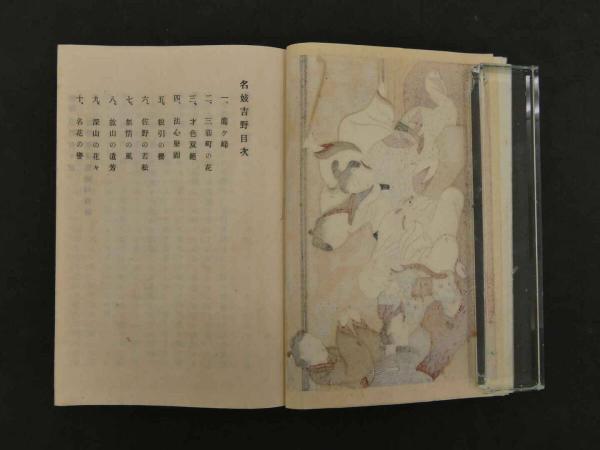 名妓吉野目次
一、鷹ケ峰
二、三筋町の花
三、才色双絶
四、法心堅固
五、根引の
六、佐野の若松
七、無情の風
八、故山の遺芳
九、深山の花々
十、名花の誉